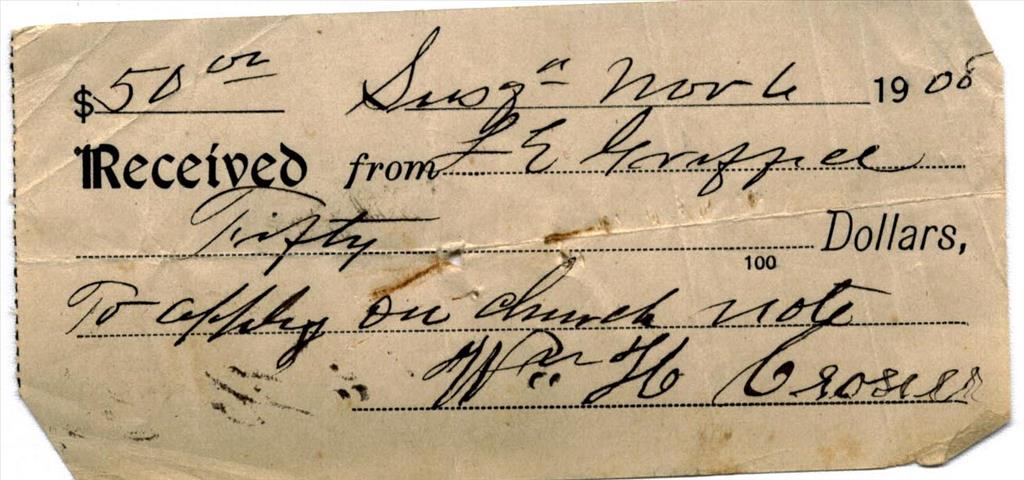 $50 00 Susqa Nov 6 1908
Received from L E Griffice
Fifty Dollars,
100
To apply on church note
Wm H Crosier